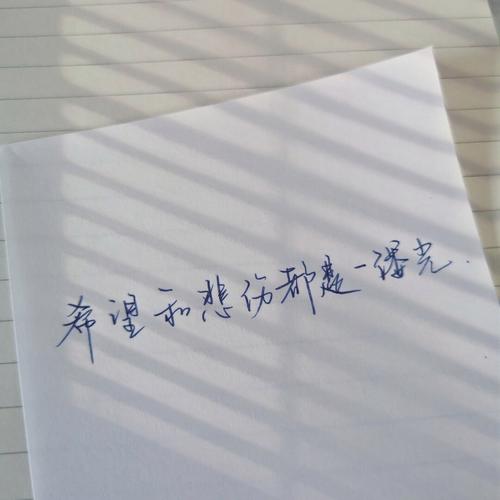 希望和悲伤都是一缕光.